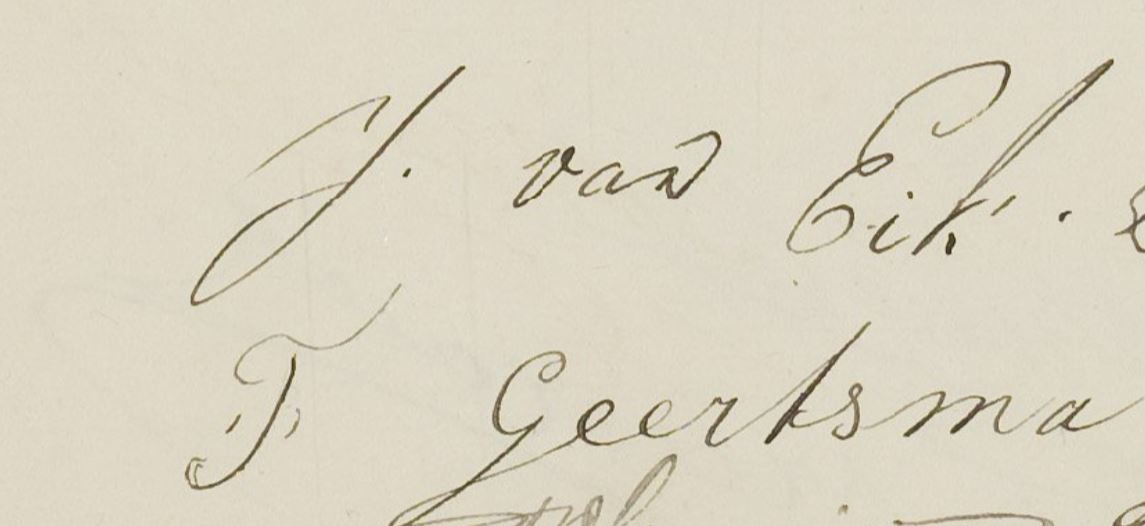 J. van Eik.
F Geertsma